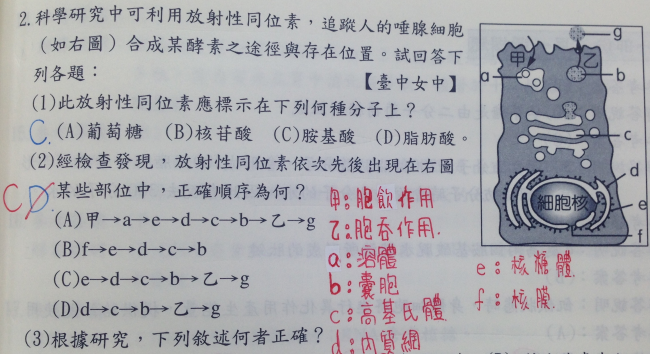 2.科學研究中可利用放射性同位素，追蹤人的唾腺細胞
（如右圖）合成某酵素之途徑與存在位置。試回答下
列各題：
【臺中女中】
(1)此放射性同位素應標示在下列何種分子上？
C. (A)葡萄糖 (B)核苷酸 (C)胺基酸 (D)脂肪酸。
(2)經檢查發現，放射性同位素依次先後出現在右圖
C D. 某些部位中，正確順序為何？
(A)甲→a→e→d→c→b→乙→g
(B)f→e→d→c→b
(C)e→d→c→b→乙→g
(D)d→c→b→乙→g
(3)根據研究，下列敘述何者正確？
甲:胞飲作用
乙:胞吞作用.
a:溶體
b:囊胞
c:高基氏體
d:內質網
e:核糖體
f:核膜
g
甲
乙
a
b
c
d
細胞核
e
f